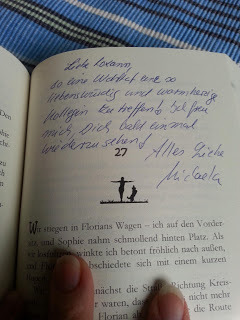 Liebe Roxann,
so eine Wohltat eine so
liebenswürdig und warmherzige
Kollegin zu treffen! Ich freu
mich, Dich bald einmal
wiederzusehen!
Alles Liebe
Michaela
27
Wir stiegen in Florians Wagen – ich auf den Vorder-
sitz, und Sophie nahm schmollend hinten Platz. Als
wir losfuhren, winkte ich betont fröhlich nach außen,
und Florian verabschiedete sich mit einem kurzen
nächst die Straße Richtung Kreis-
waren, da nicht mehr
Florian die Route